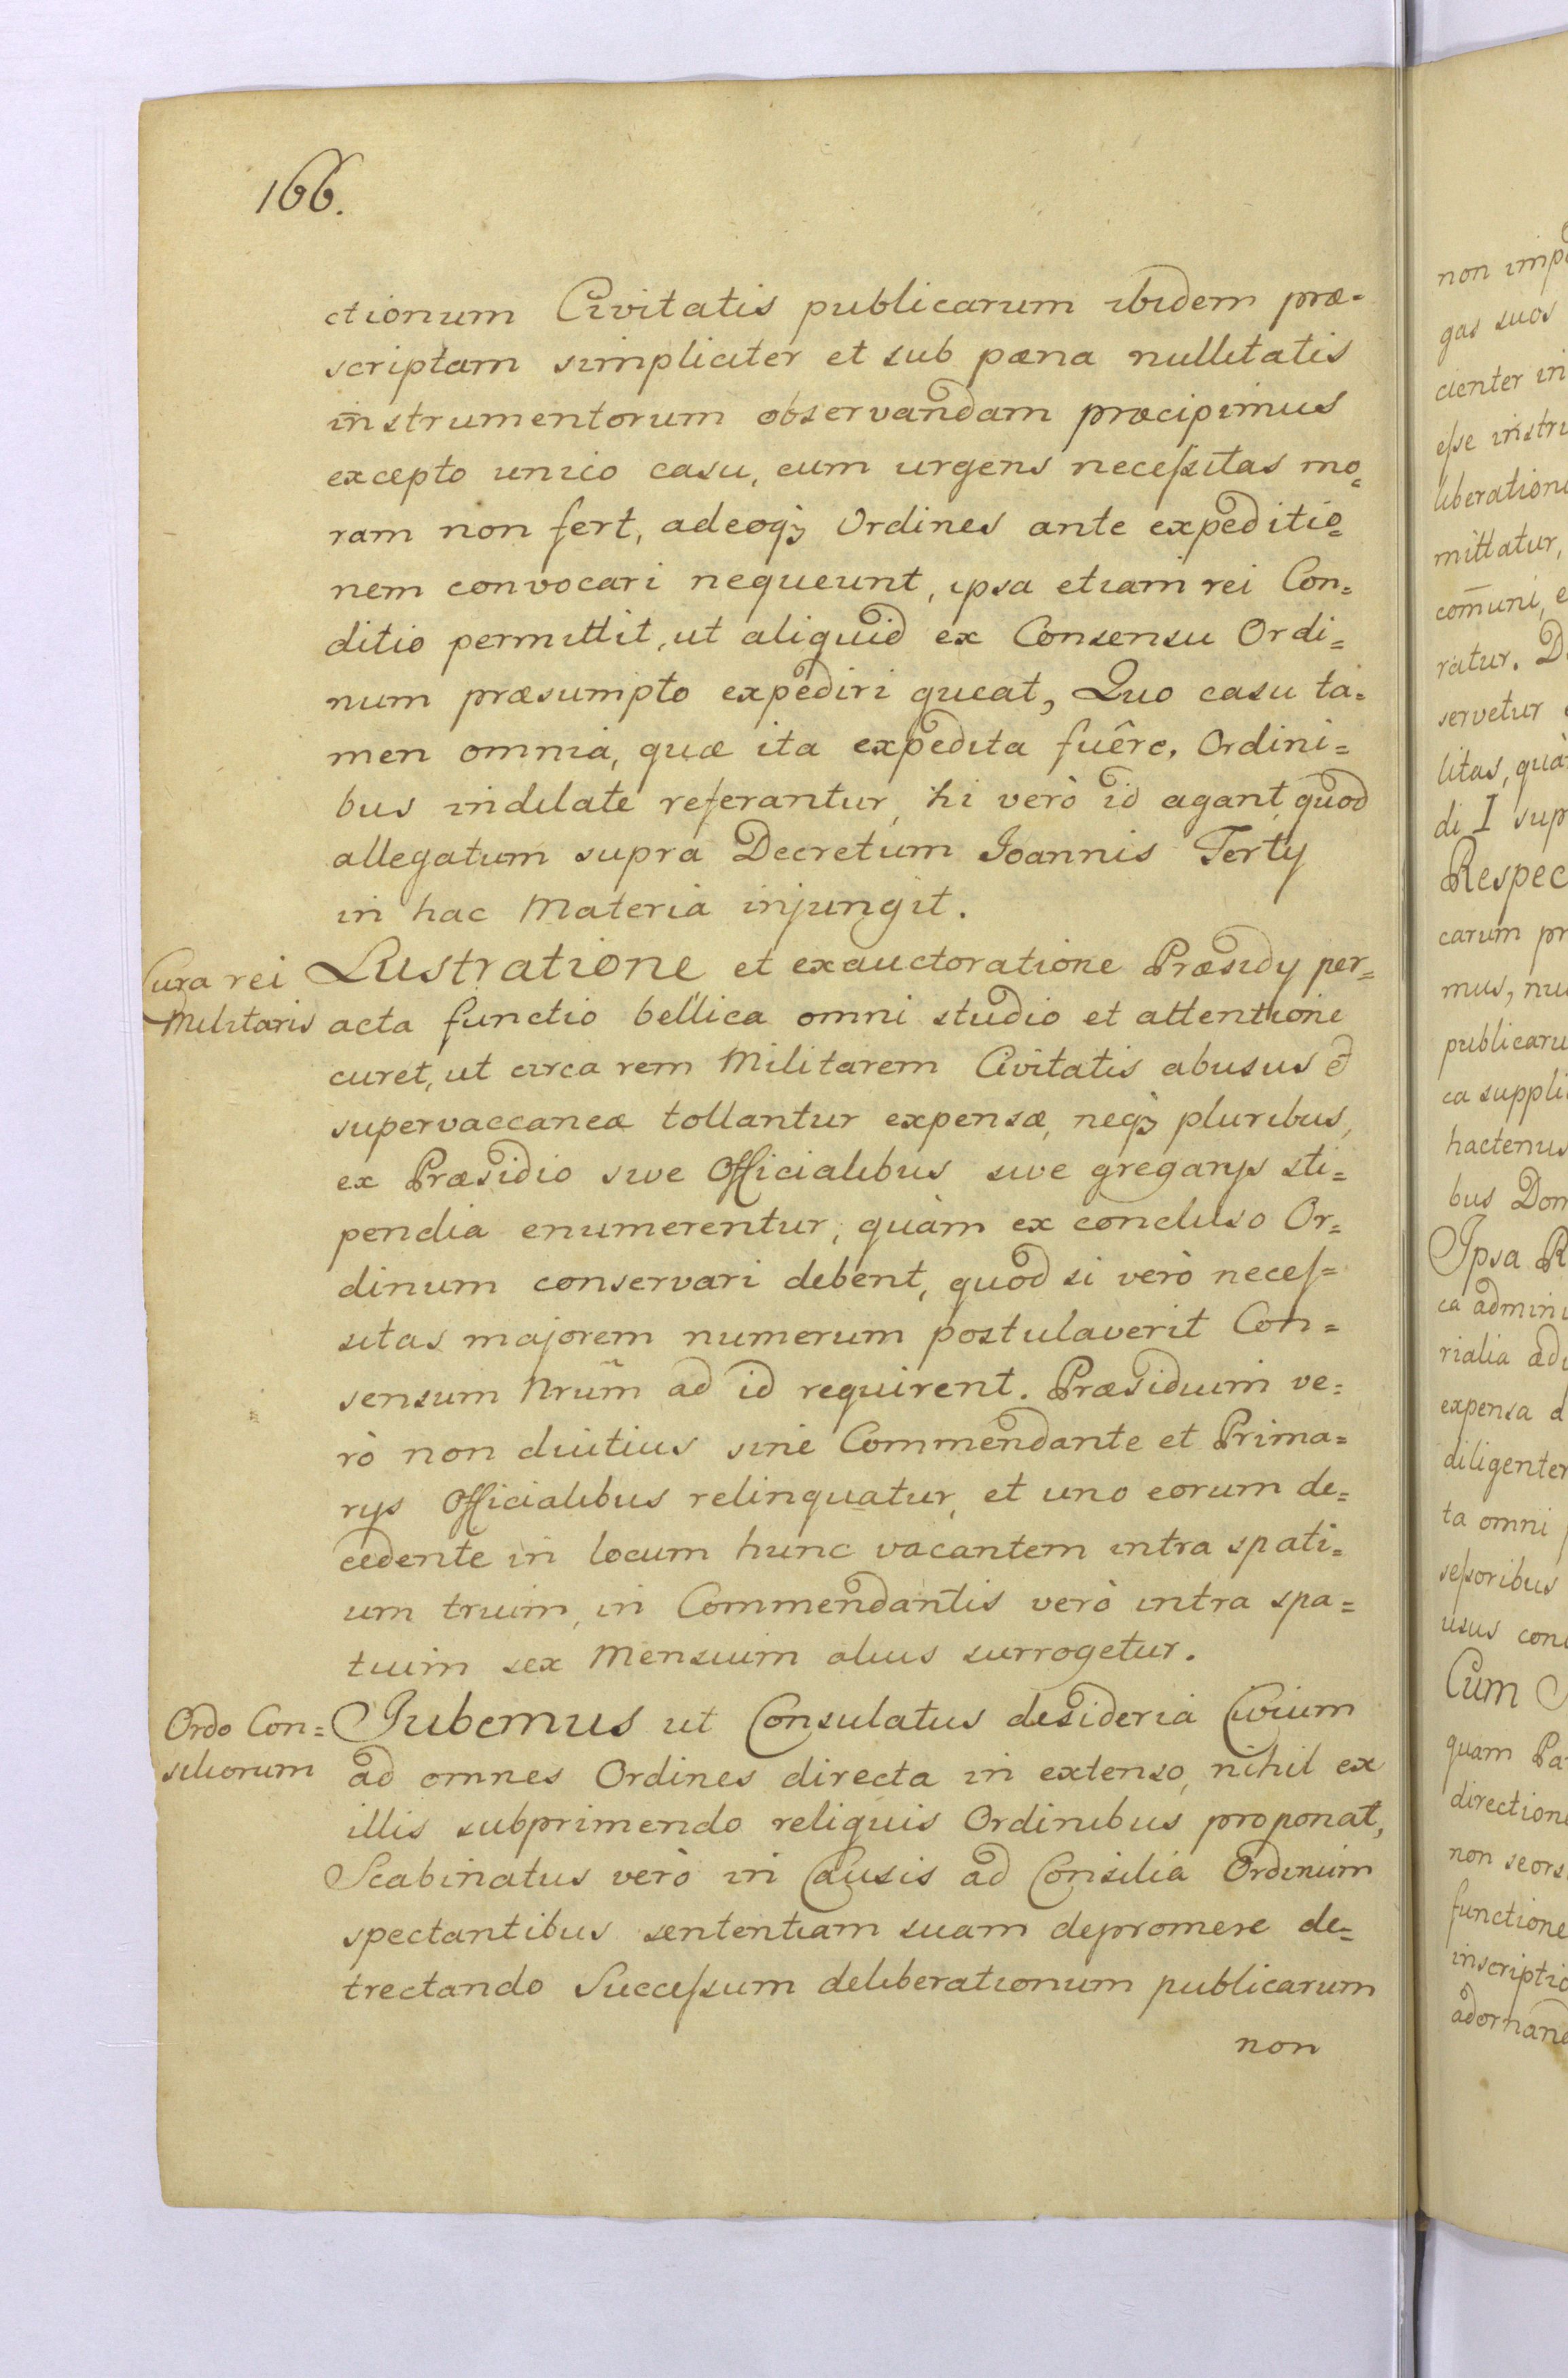 166.
ctionum Civitatis publicarum ibidem præ-
scriptam simpliciter et sub pæna nullitatis
instrumentorum observandam præcipimus
excepto unico casu, cum urgens neceſsitas mo=
ram non fert, adeoqꝫ Ordines ante expeditio=
nem convocari nequeunt, ipsa etiam rei Con=
ditio permittit, ut aliquid ex Consensu Ordi=
num præsumpto expediri queat, Quo casu ta=
men omnia, quæ ita expedita fuêre, Ordini=
bus indilate referantur, hi verò id agant, quod
allegatum supra Decretum Joannis Tertÿ
in hac Materia injungit.
Cura rei
Militaris
Lustratione et exauctoratione Præsidÿ per=
acta functio bellica omni studio et attentione
curet, ut circa rem Militarem Civitatis abusus et
supervaccaneæ tollantur expensæ, neqꝫ pluribus,
ex Præsidio sive Officialibus sive gregarÿs sti=
pendia enumerentur, quàm ex concluso Or=
dinum conservari debent, quod si verò neceſ=
sitas majorem numerum postulaverit Con=
sensum Nrum̃ ad id requirent. Præsidium ve=
rò non diutius sine Commendante et Prima=
rÿs Officialibus relinquatur, et uno eorum de=
cedente in locum hunc vacantem intra spati=
um trium, in Commendantis verò intra spa=
tium sex Mensium alius surrogetur.
Ordo Con=
siliorum
Jubemus ut Consulatus desideria Civium
ad omnes Ordines directa in extenso, nihil ex
illis subprimendo reliquis Ordinibus proponat,
Scabinatus verò in Causis ad Consilia Ordinum
spectantibus sententiam suam depromere de=
trectando Succeſsum deliberationum publicarum
non
non
gas suos
cienter in
eſse instru
liberation
mittatur,
com̄uni, e
ratur.
servetur
litas, quà
di I sup
Respec
carum pr
mus, nu
publicaru
ca suppli
hactenus
bus Dom
Ipsa R
ca admini
rialia adi
expensa
diligenter
ta omni
seſsoribus
usus con
Cum
quam Pa
direction
non seors
functione
inscriptio
adornand